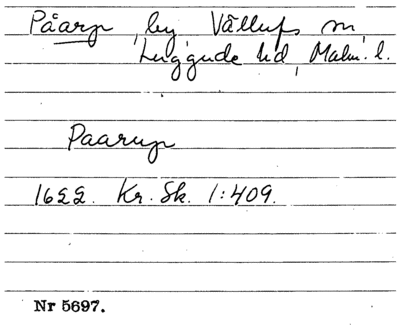 Påarp, by, Vållufs sn,
Luggude hd, Malm. l.
Paarup
1622. Kr. Sk. 1:409.
Nr 5697.